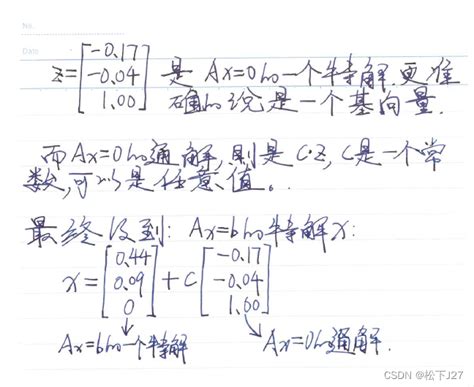 No.
Date
z=[-0.17 -0.04 1.00] 是 Ax=0的一个特解.更准
确的说是一个基向量.
而Ax=0的通解,则是C·Z, C是一个常
数,可以是任意值。
最终得到: Ax=b的特解x:
x=[0.44 0.09 0]+C[-0.17 -0.04 1.00]
Ax=b的一个特解 Ax=0的通解.
CSDN @松下J27